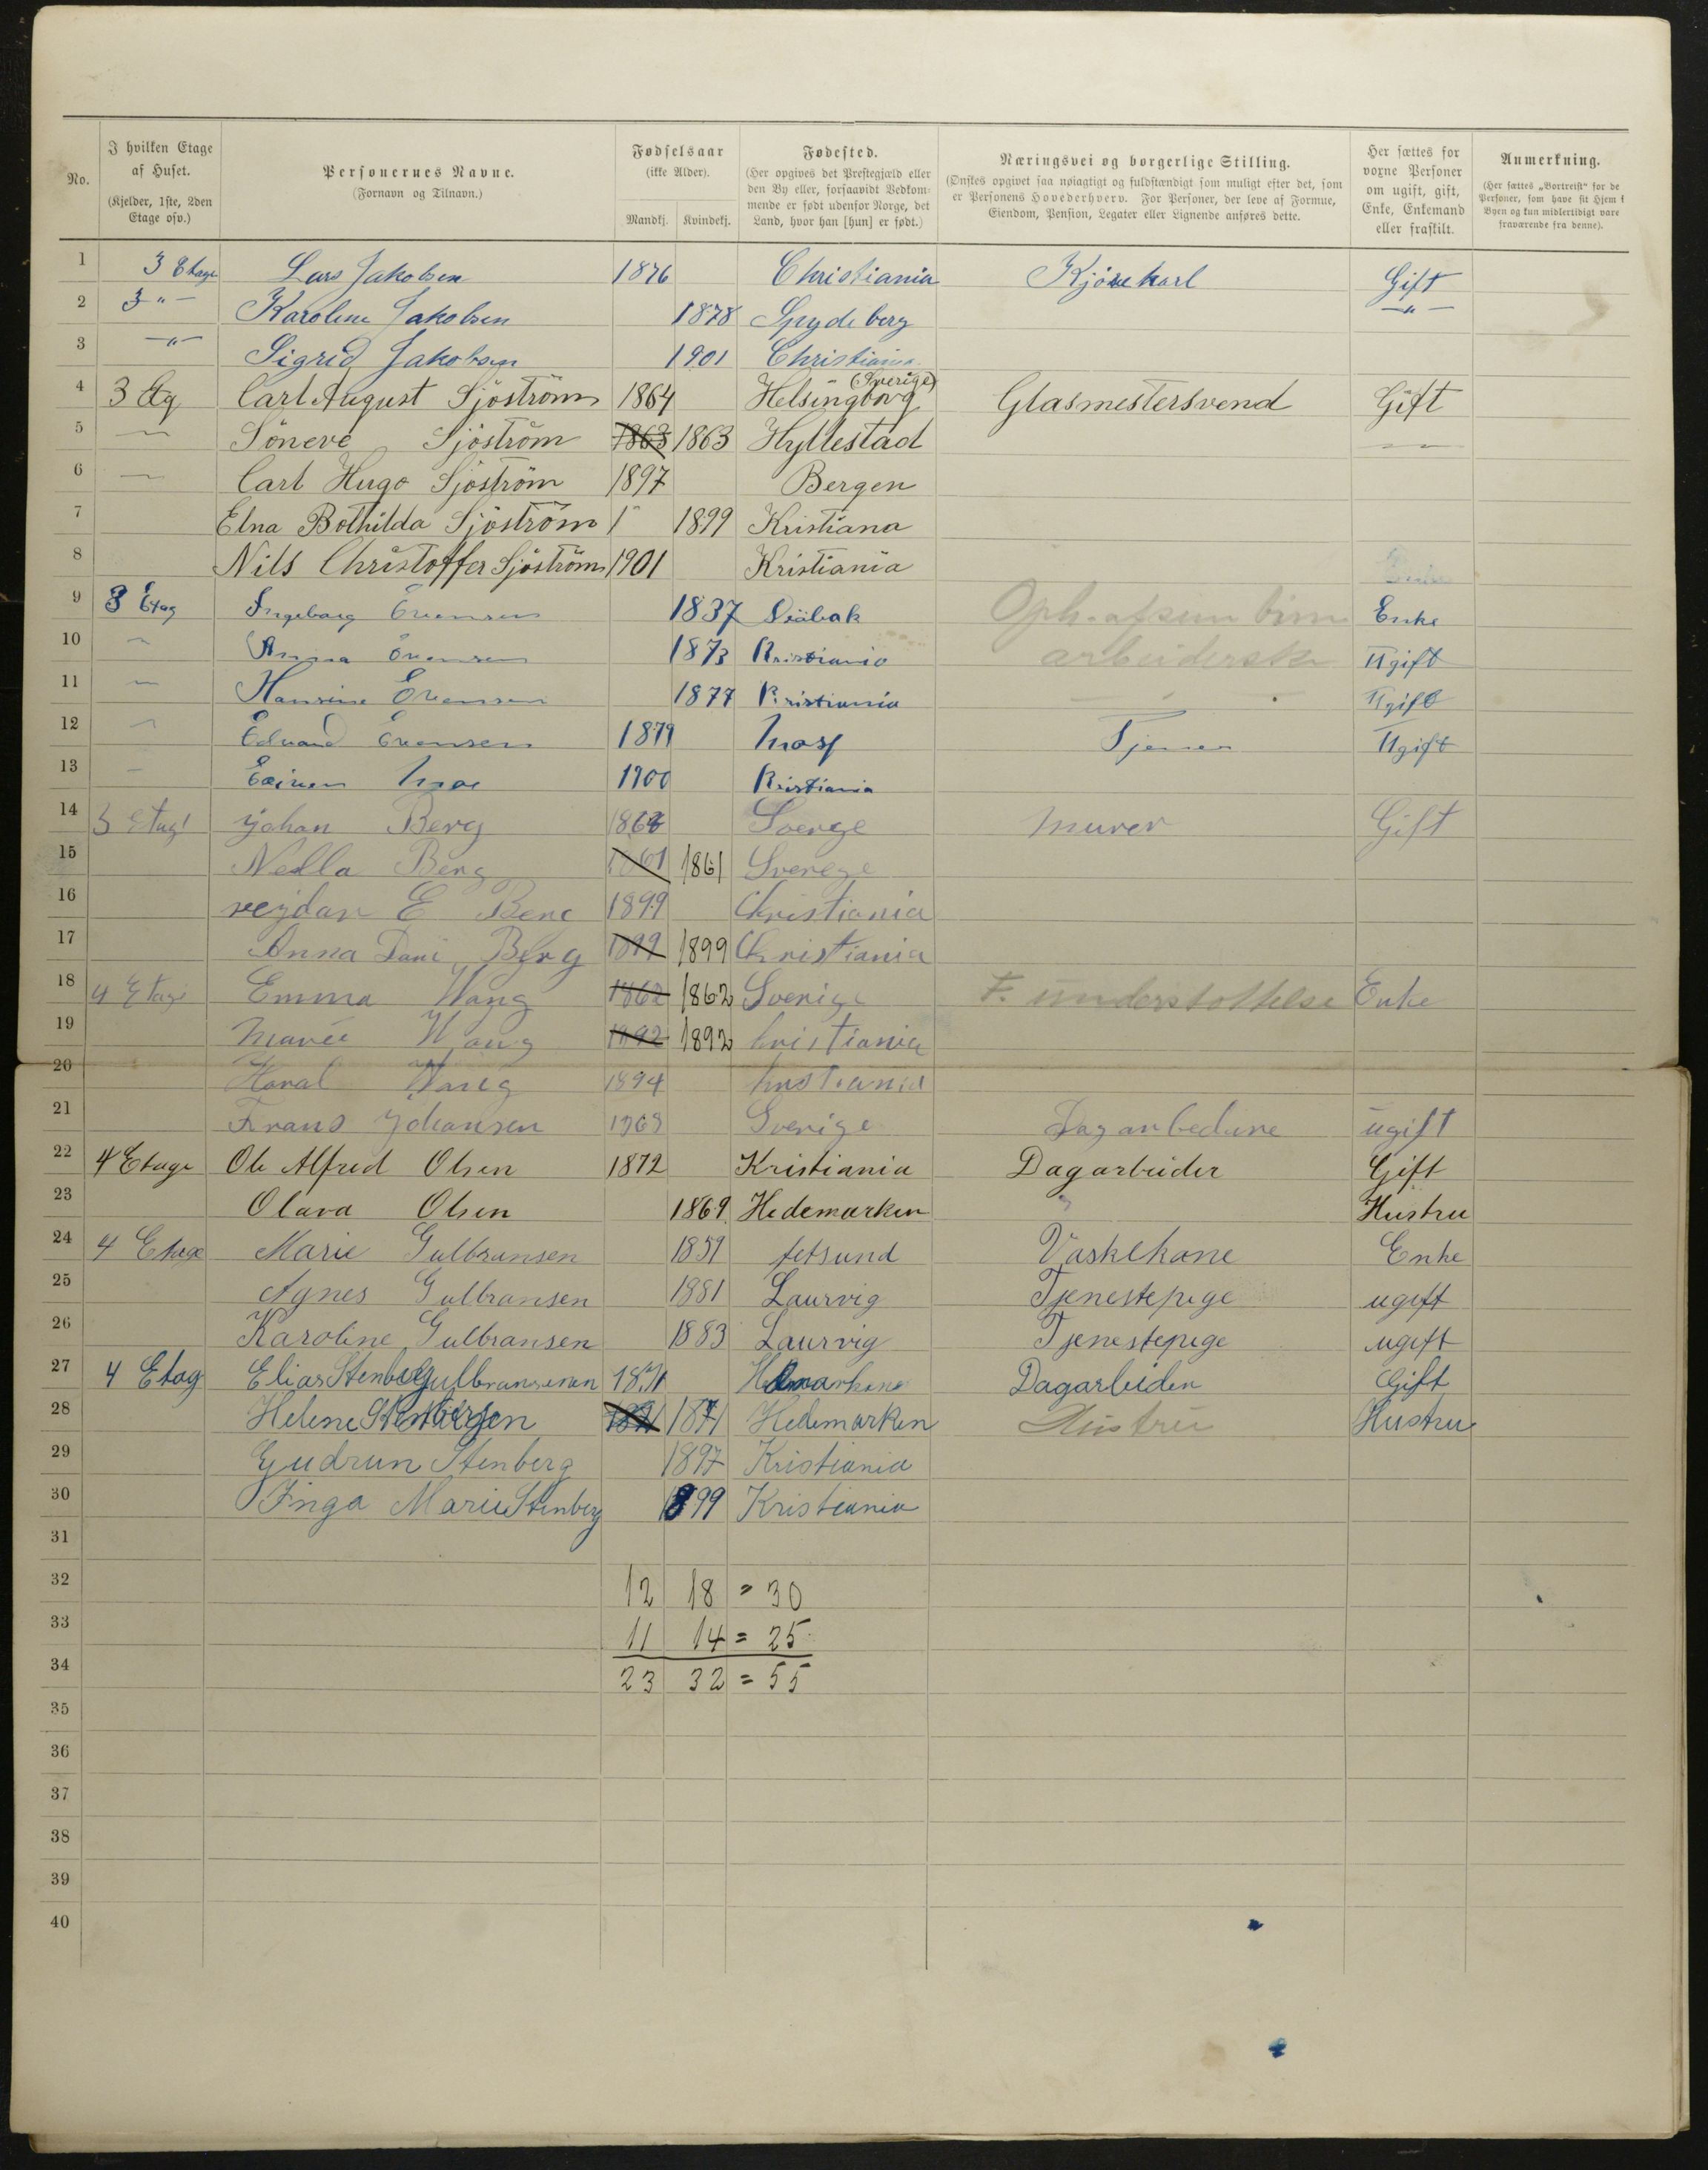 No.
I hvilken Etage af Huset.
(Kjelder, 1ste, 2den Etage osv.)
Personernes Navne.
(Fornavn og Tilnavn.)
Fødselsaar
(ikke Alder).
Mandkj. Kvindekj.
Fødested.
(Her opgives det Prestegjæld eller den By eller, forsaavidt Vedkommende er født udenfor Norge, det Land, hvor han [hun] er født.)
Næringsvei og borgerlige Stilling.
(Ønskes opgivet saa nøiagtigt og fuldstændigt som muligt efter det, som er Personens Hovederhverv. For Personer, der leve af Formue, Eiendom, Pension, Legater eller Lignende anføres dette.
Her sættes for voxne Personer om ugift, gift, Enke, Enkemand eller fraskilt.
Anmerkning.
(Her sættes „Bortreist" for de Personer, som have sit Hjem i Byen og kun midlertidigt vare fraværende fra denne).
1 3 Etage Lars Jakobsen 1876 Christiania Kjørekarl Gift
2 3 " Karoline Jakobsen 1878 Spydeberg "
3 " Sigrid Jakobsen 1901 Christiania
4 3 Etg Carl August Sjöström 1864 Helsingborg (Sverige) Glasmestersvend Gift
5 — Söneve Sjöström 1863 1863 Hyllestad —
6 — Carl Hugo Sjöström 1897 Bergen
7 Elna Bothilda Sjöström 1 1899 Kristiana
8 Nils Christoffer Sjöström 1901 Kristiania
9 3 Etag Ingeborg Evensen 1837 Enke
10 " Anna Evensen 1873 Kristiania arbeiderske Ugift
11 — Hansine Evensen 1877 Kristiania — Ugift
12 " Edvard Evensen 1879 Moss Tjener Ugift
13 — Moe 1900 Kristiania
14 3 Etage Johan Berg 1868 Sverge Murer Gift
15 Nella Berg 1861 1861 Sverege
16 E Berg 1899 Christiania
17 Anna Berg 1899 1899 Christiania
18 4 Etage Emma Wang 1862 1862 Sverige F. understottelse Enke
19 Marie Wang 1892 1892 Kristiania
20 Haral Wang 1894 Kristiania
21 Frans Johansen Sverige ugift
22 4 Etage Ole Alfred Olsen 1872 Kristiania Dagarbeider Gift
23 Olava Olsen 1869 Hedemarken " Hustru
24 4 Etage Marie Gulbransen 1859 Fetsund Vaskekone Enke
25 Agnes Gulbransen 1881 Laurvig Tjenestepige ugift
26 Karoline Gulbransen 1883 Laurvig Tjenestepige ugift
27 4 Etag Elias Stenberg 1871 Dagarbeider Gift
28 Helene Stenbergsen 1871 1871 Hedemarken Hustru Hustru
29 Gudrun Stenberg 1897 Kristiania
30 Inga Marie Stenberg 1899 Kristiania
31
32 12 18 = 30
33 11 14 = 25
34 23 32 = 55
35
36
37
38
39
40